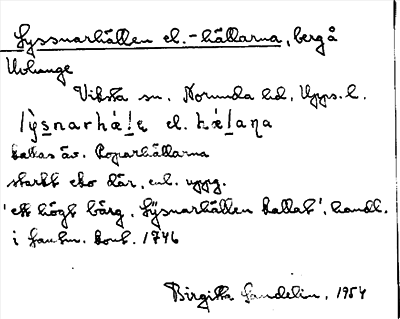 Lyssnarhällen el. -hällarna, berg å
Ulvhange
Viksta sn. Norunda hd, Upps. l.
kallas äv. Roparhällarna
starkt eko där, enl. uppg.
'ett högt bärg, Lÿsnarhällen kallat', handl.
i Lantm. kont. 1746
Birgitta Sandelin, 1954